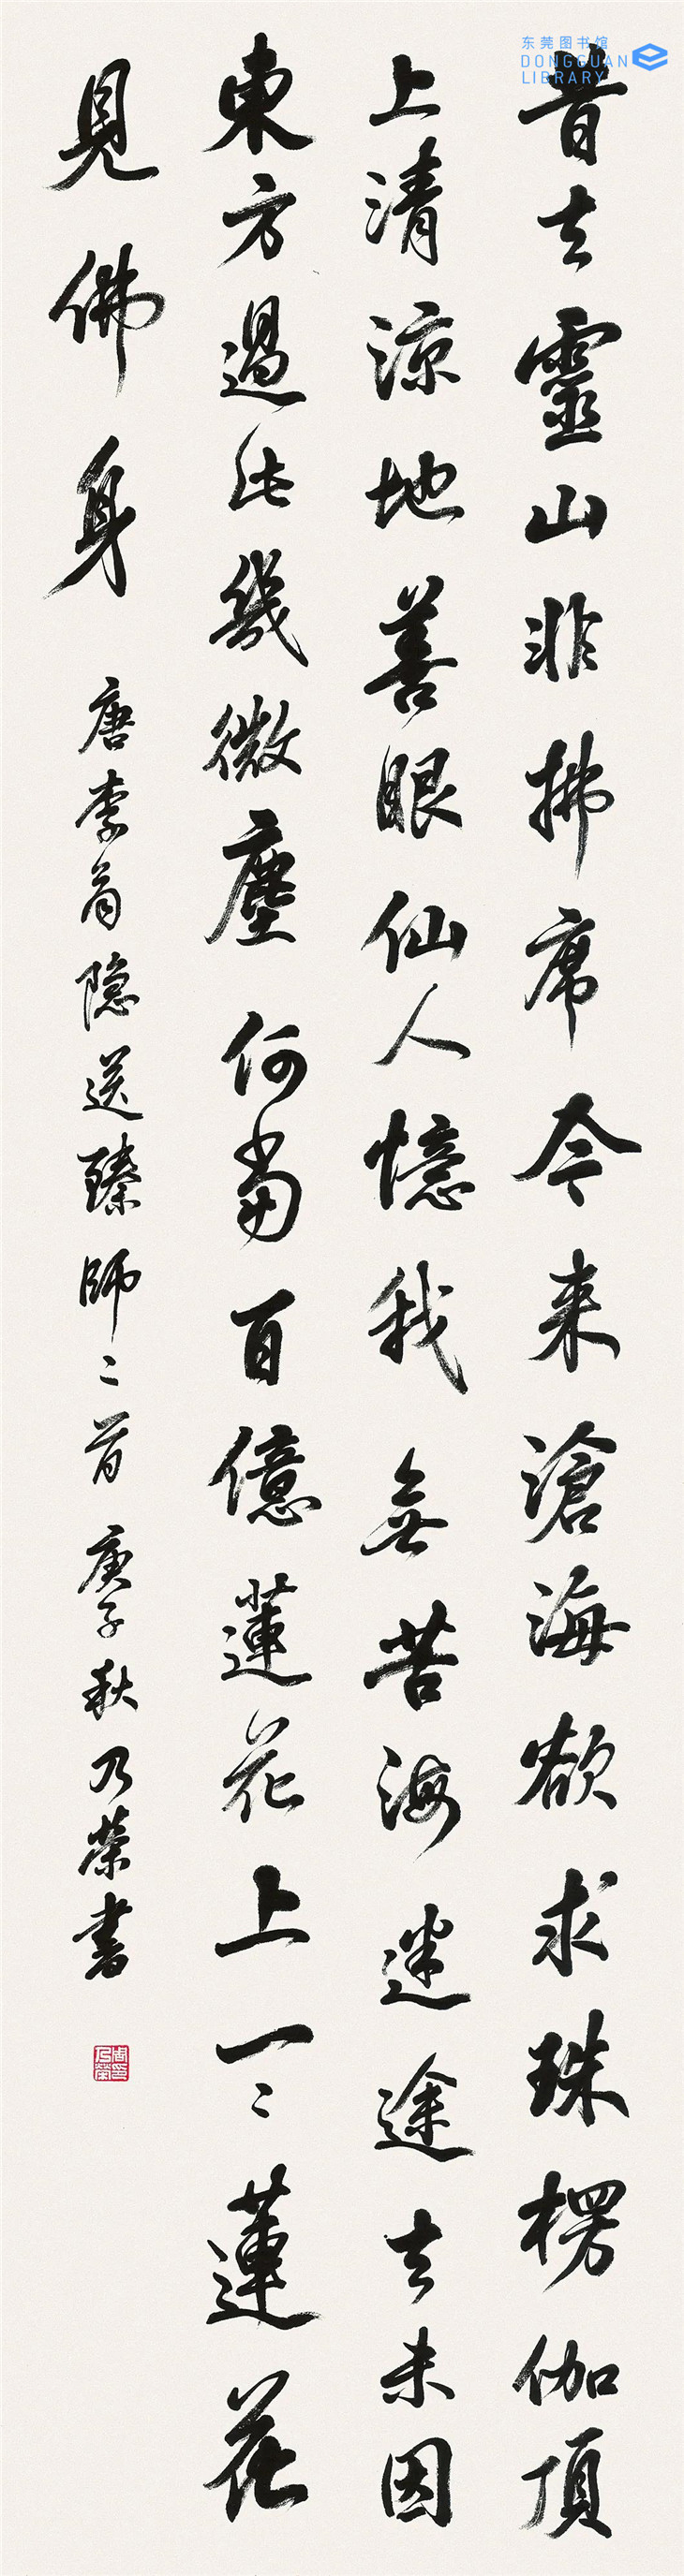 东莞图书馆
DONGGUAN
LIBRARY
昔去靈山非拂席今来滄海欲求珠楞伽頂
上清涼地善眼仙人憶我無苦海迷途去未因
東方過此幾微塵何當百億蓮花上一〻蓮花
見佛身 唐李商隐送臻師二首 庚子秋乃榮書
周乃榮印